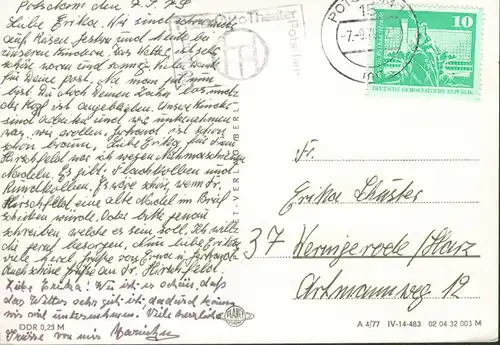 Potsdam den 7.9.78
Liebe Erika! Wir sind schon
auf Reisen, gestern und heute bei
unseren Kindern. Das Wetter ist sehr
schön, warm und sonnig. Vielen Dank
für Deine Post. Na man
bist Du doch Deinen Zahn los und
der Kopf ist angeblieben. Unsere Kinder
sind arbeiten und wir unternehmen
was wir wollen. Gerhard ist schon
schön braun. Liebe Erika für Frau
Hirschfeld war ich wegen Nähmaschinen
Nadeln. Es gibt Flachkolben und
Rundkolben. Es wäre schön, wenn Fr.
Hirschfeld eine alte Nadel im Brief
schicken würde. Oder bitte genau
schreiben, welche es sein soll. Ich will
die gern besorgen. Nun liebe Erika
viele herzl. Grüße von Erna u. Gerhard
Auch schöne Grüße an Fr. Hirschfeld.
Liebe Erika! Wir ist es schön, daß
das Wetter sehr gut ist, dadurch können
wir viel unternehmen. Viele herzliche
Grüsse von mir
DDR 0,25 M
Theater
POTSDAM
15
-7.-9.78
10
DEUTSCHE DEMOKRATISCHE REPUBLIK
PLANET-VERLAG BERLIN
PLANET
Fr.
Erika Schuster
37 Wernigerode/Harz
Amtmannweg 12
A 4/77 IV-14-483 02 04 32 003 M